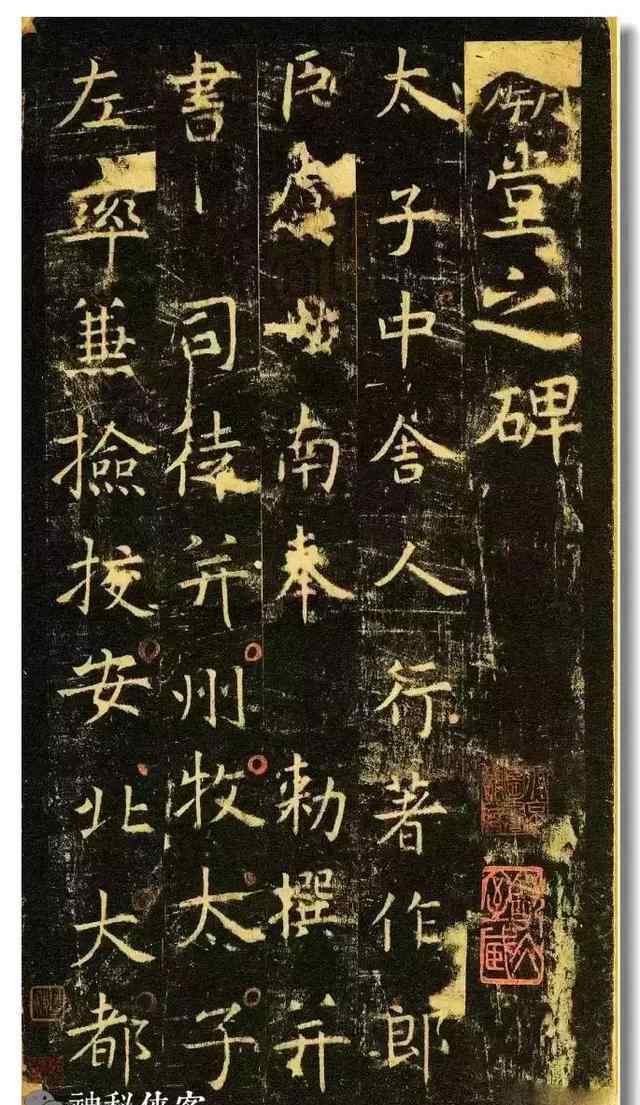 堂之碑
太子中舍人行著作郎
臣虞世南奉勅撰并
書司徒并州牧太子
左率兼撿挍安北大都
神秘侠客